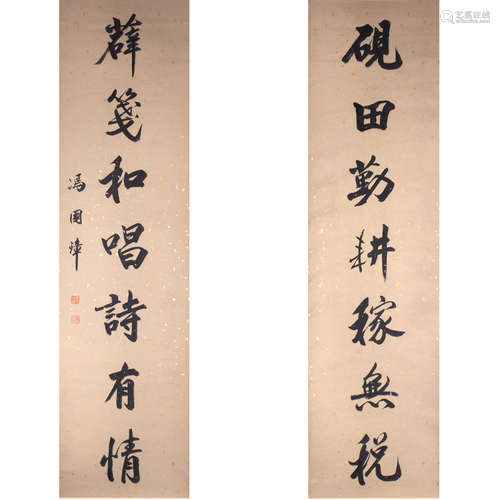 砚田勤耕稼無税
薜箋和唱詩有情
馮國璋